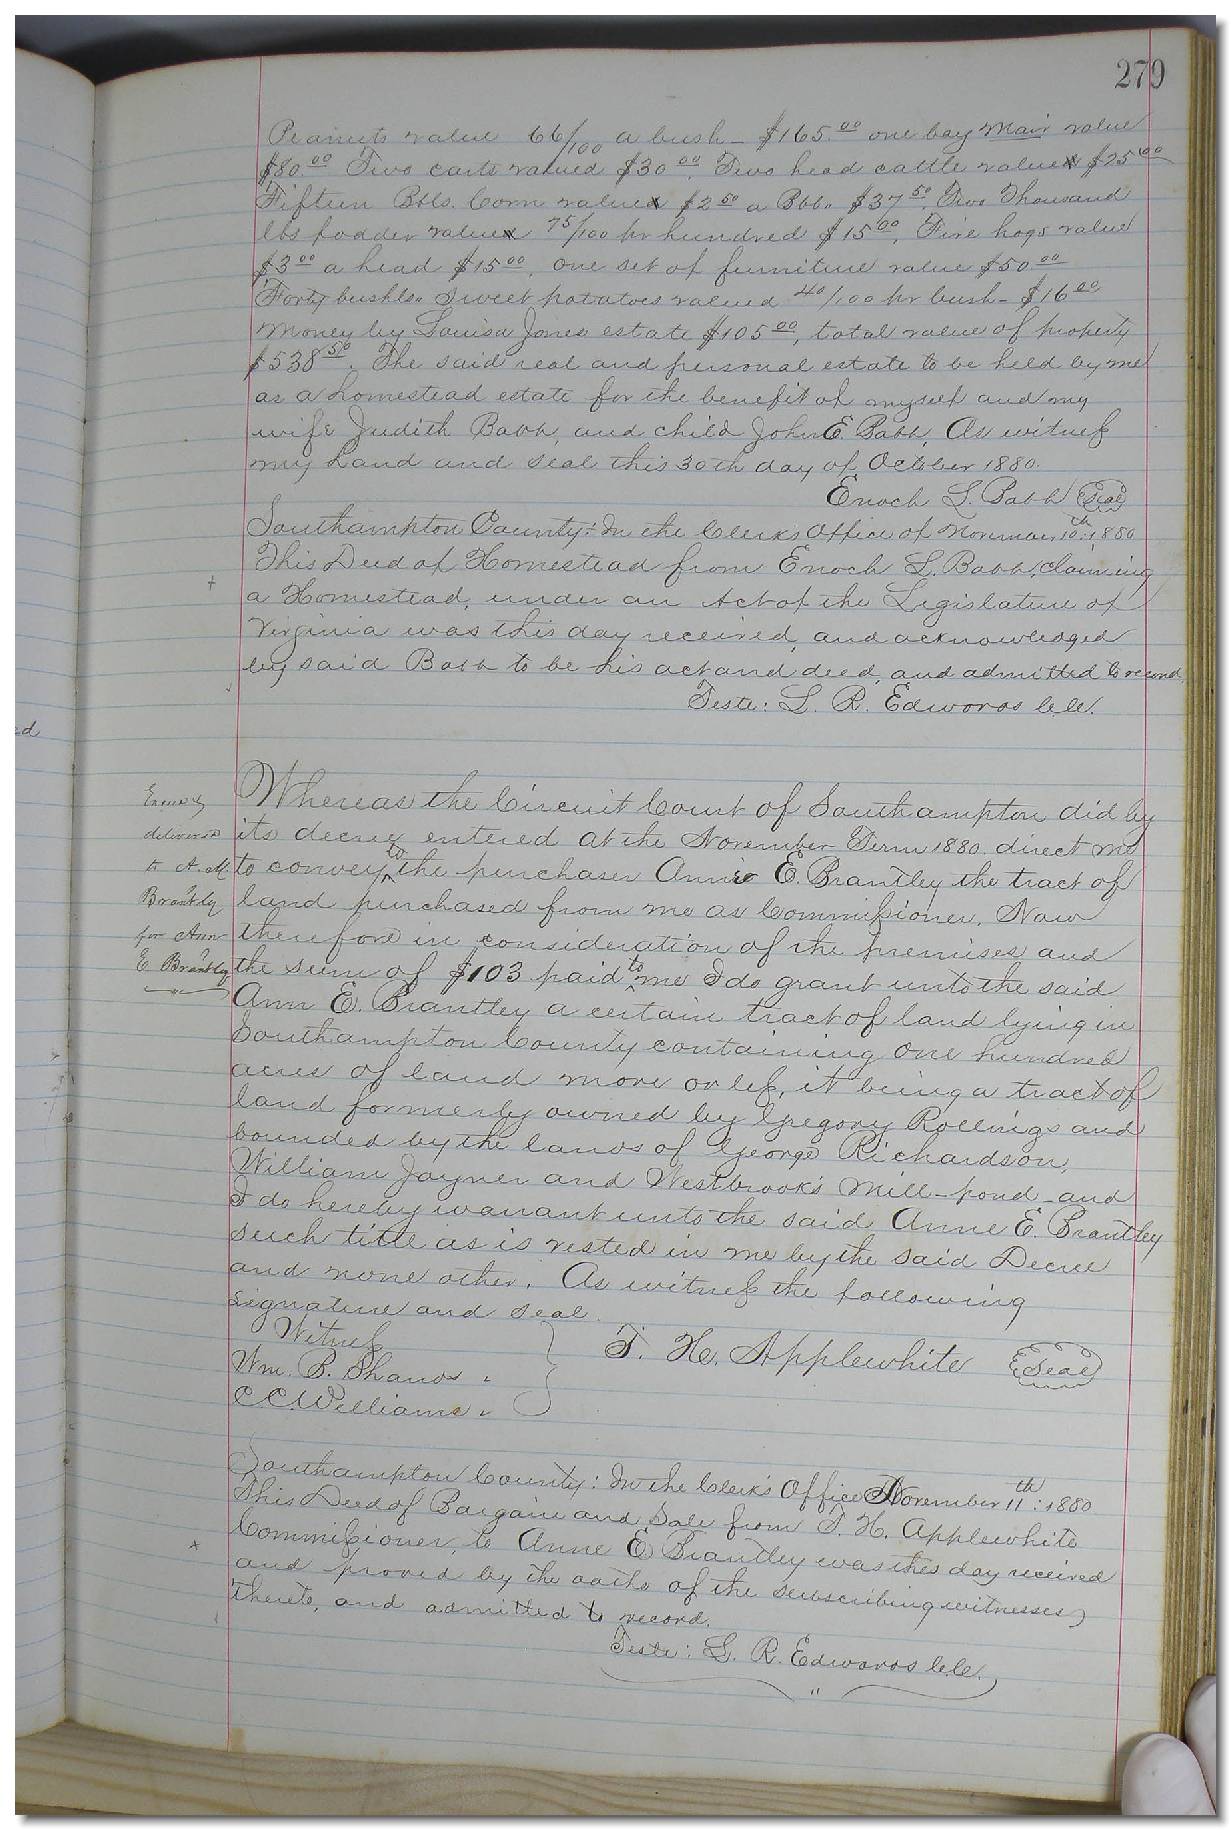 279
Peanuts value 66/100 a bush - $165.00 one bay mair value
$80.00 Two carts valued $30.00, Two head cattle value $25.00
Fifteen Bbls. Corn value $2.50 a Bbl. $37.50, Two Thousand
lbs fodder value 75/100 pr hundred $15.00, Five hogs value
$3.00 a head $15.00, one set of furniture value $50.00
Forty bushls. Sweet potatoes valued 40/100 pr bush - $16.00,
Money by Louisa Jones estate $105.00, total value of property
$538.50. The said real and personal estate to be held by me
as a homestead estate for the benefit of myself and my
wife Judith Babb, and child John E. Babb. As witness
my hand and seal this 30th day of October 1880.
Enoch L. Babb (Seal)
Southampton County: In the Clerks Office of November 10th: 1880
This Deed of Homestead from Enoch L. Babb, claiming
a Homestead, under an Act of the Legislature of
Virginia was this day received, and acknowledged
by said Babb to be his act and deed, and admitted to record.
Teste: L. R. Edwards C.C.
ed
Exmd &
delivered
to A. M.
Brantley
for Ann
E Brantley
Whereas the Circuit Court of Southampton did by
its decree entered at the November Term 1880 direct me
to convey to the purchaser Annie E. Brantley the tract of
land purchased from me as Commissioner. Now
therefore in consideration of the premises and
the sum of $103 paid to me I do grant unto the said
Ann E. Brantley a certain tract of land lying in
Southampton County containing one hundred
acres of land more or less, it being a tract of
land formerly owned by Gregory Rollings and
bounded by the lands of George Richardson,
William Joyner and Westbrook's Mill-pond - and
I do hereby warrant unto the said Anne E. Brantley
such title as is vested in me by the said Decree
and none other. As witness the following
signature and seal.
Witness
T. H. Applewhite (Seal)
Wm. B. Shands
C C. Williams
Southampton County: In the Clerk's Office November 11th: 1880
This Deed of Bargain and Sale from T. H. Applewhite
Commissioner, to Anne E Brantley was this day received
and proved by the oaths of the subscribing witnesses
thereto, and admitted to record.
Teste: L. R. Edwards C.C.